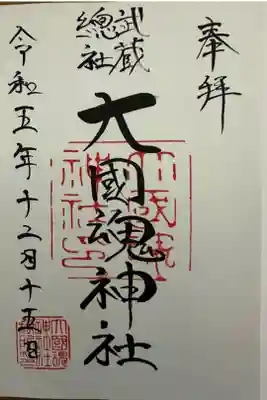 奉拝
武蔵
總社
大國魂神社
令和五年十二月十五日